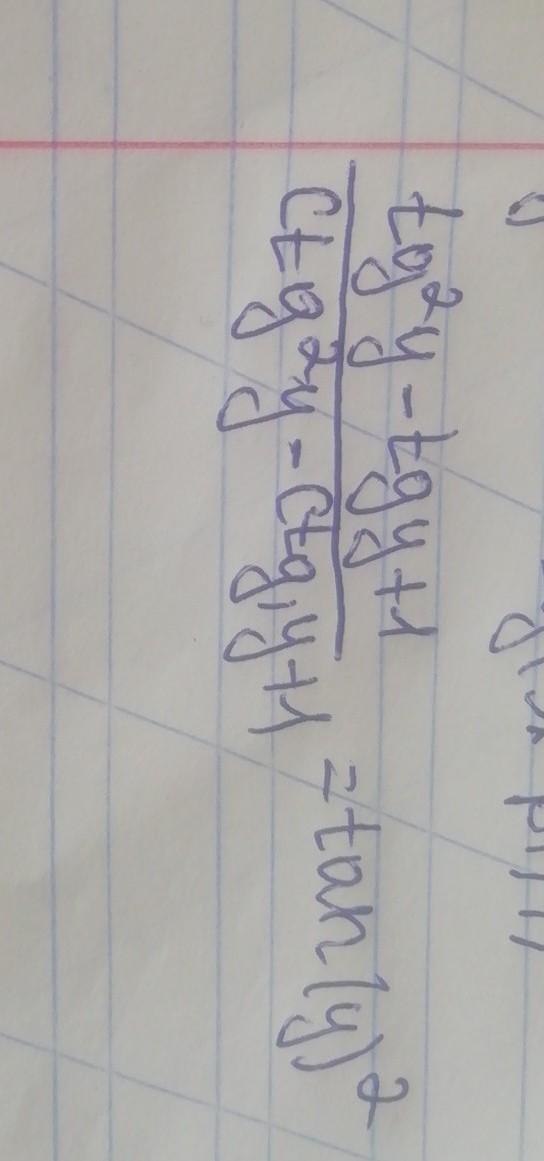 tg²y - tgy+1
ctg²y - ctgy+1
=tan(y)²